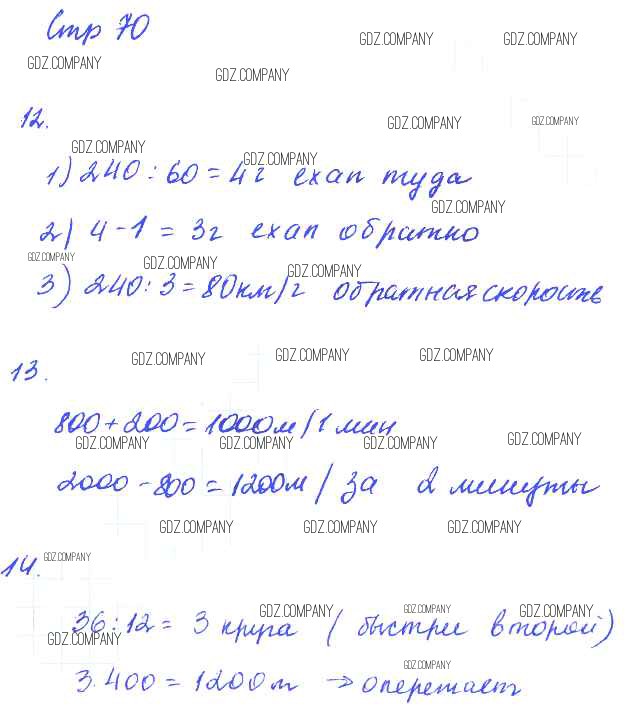 Стр 70
GDZ.COMPANY GDZ.COMPANY
GDZ.COMPANY
GDZ.COMPANY
12.
GDZ.COMPANY GDZ.COMPANY
GDZ.COMPANY GDZ.COMPANY
1) 240 : 60 = 4г ехал туда
GDZ.COMPANY
2) 4 - 1 = 3г ехал обратно
GDZ.COMPANY GDZ.COMPANY GDZ.COMPANY
3) 240 : 3 = 80км/г обратная скорость
GDZ.COMPANY GDZ.COMPANY GDZ.COMPANY
13.
800 + 200 = 1000м / 1 мин
GDZ.COMPANY GDZ.COMPANY GDZ.COMPANY GDZ.COMPANY
2000 - 800 = 1200м / за 2 минуты
GDZ.COMPANY GDZ.COMPANY GDZ.COMPANY
14.
GDZ.COMPANY
36 : 12 = 3 круга ( быстрее второй )
GDZ.COMPANY GDZ.COMPANY GDZ.COMPANY
GDZ.COMPANY
GDZ.COMPANY
3 · 400 = 1200м → опережает